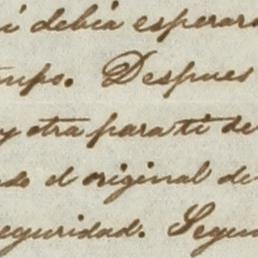 i debia esperar
mpo. Despues
y otra para ti de
do el original de
seguridad. Segun